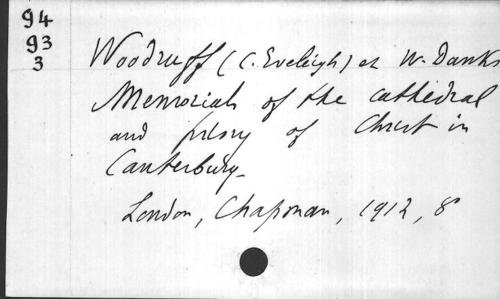 94
93
3
Woodruff (C. Eveleigh) et W. Danks
Memorials of the cathedral
and priory of Christ in
Canterbury_
London, Chapman, 1912, 8°